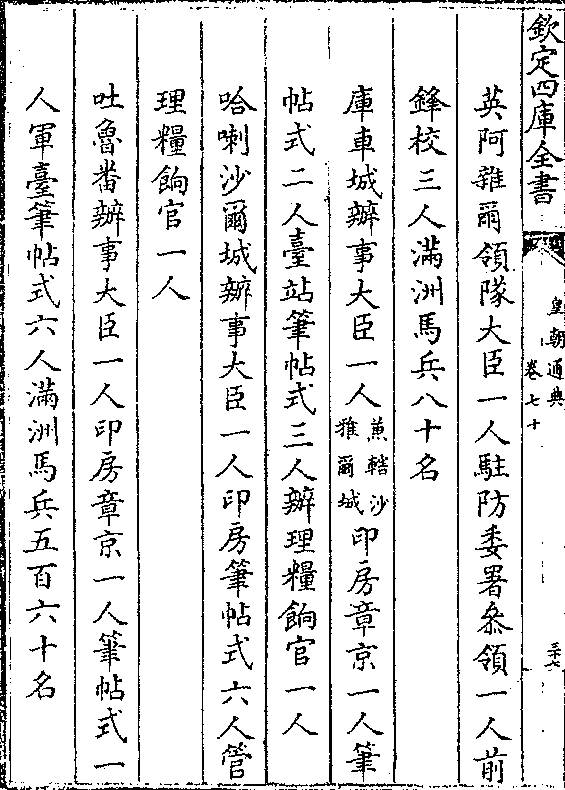 欽定四庫全書
皇朝通典
卷七十
三十六
英阿雜爾領隊大臣一人駐防委署叅領一人前
鋒校三人滿洲馬兵八十名
庫車城辦事大臣一人兼轄沙雅爾城印房章京一人筆
帖式二人臺站筆帖式三人辦理糧餉官一人
哈喇沙爾城辦事大臣一人印房筆帖式六人管
理糧餉官一人
吐魯番辦事大臣一人印房章京一人筆帖式一
人軍臺筆帖式六人滿洲馬兵五百六十名